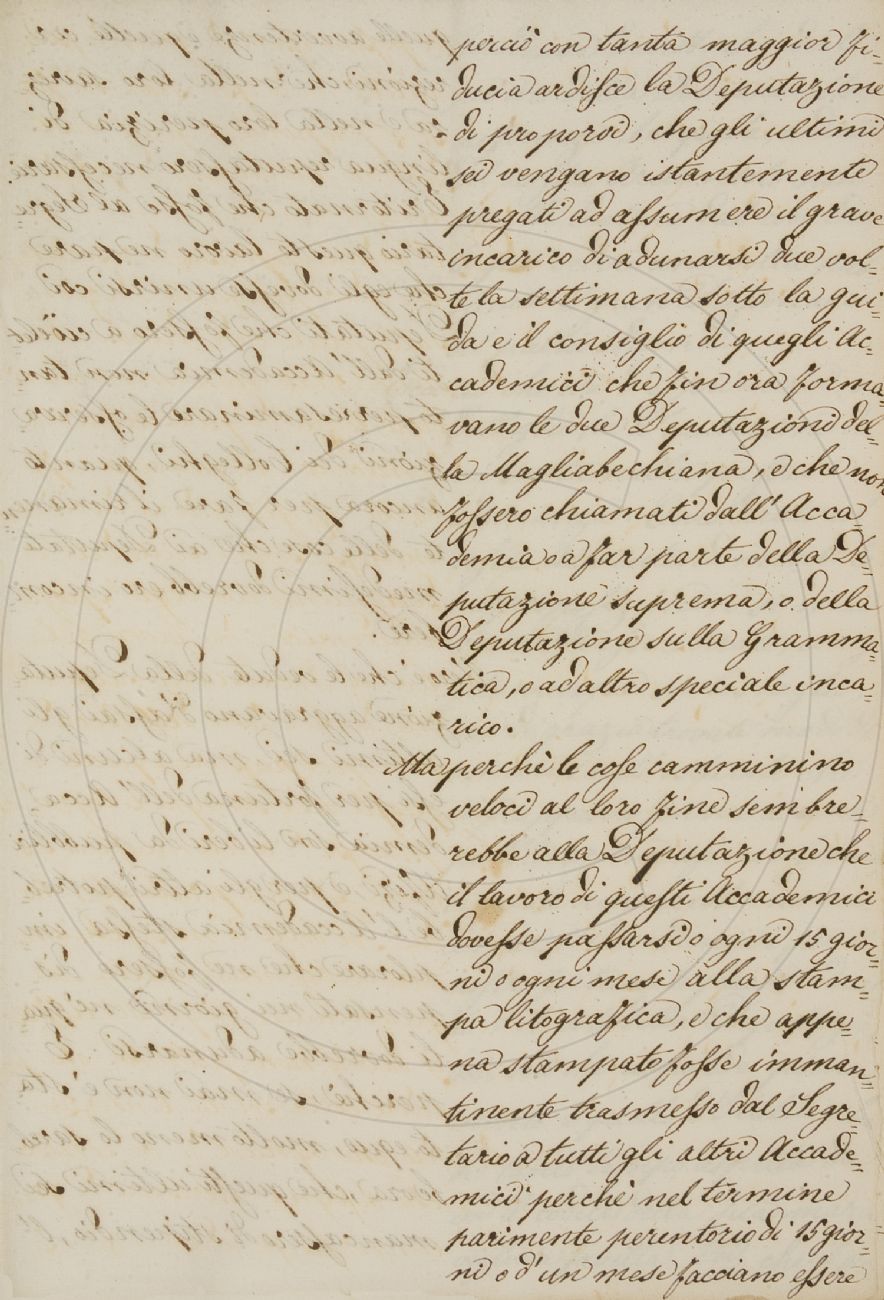 perciò con tanta maggior fi-
ducia ardisce la Deputazione
di proporvi, che gli ultimi
sei vengano istantemente
pregati ad assumere il grave
incarico di adunarsi due vol-
te la settimana sotto la gui-
da e il consiglio di quegli Ac-
cademici che fin ora forma-
vano le due Deputazioni del-
la Magliabechiana, e che non
fossero chiamati dall'Acca-
demia o a far parte della De-
putazione suprema, o della
Deputazione sulla Gramma-
tica, o ad altro speciale inca-
rico.
Ma perchè le cose camminino
veloci al loro fine sembre-
rebbe alla Deputazione che
il lavoro di questi Accademici
dovesse passarsi o ogni 15 gior-
ni o ogni mese alla stam-
pa litografica, e che appe-
na stampato fosse imman-
tinente trasmesso dal Segre-
tario a tutti gli altri Accade-
mici perchè nel termine
parimente perentorio di 15 gior-
ni o d'un mese facciano essere